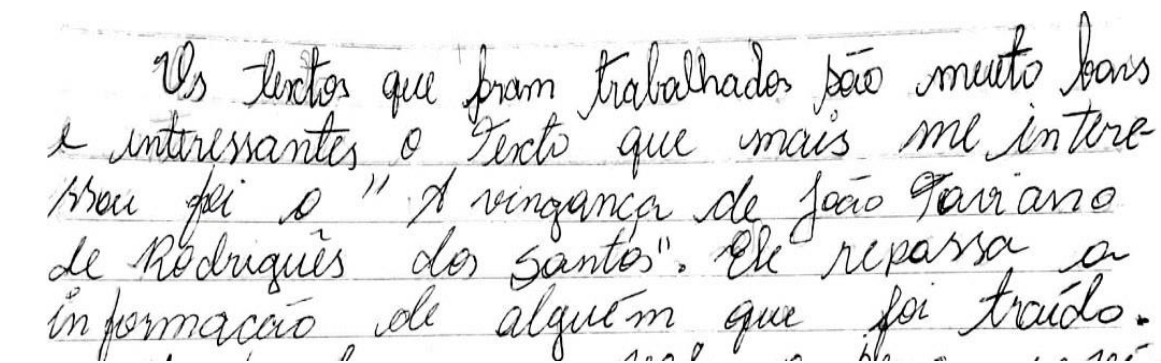 Os textos que foram trabalhados são muito bons
e interessantes o Texto que mais me intere-
ssou foi o " A vingança de João Taviano
de Rodriguês dos Santos". Ele repassa a
informação de alguém que foi traído.